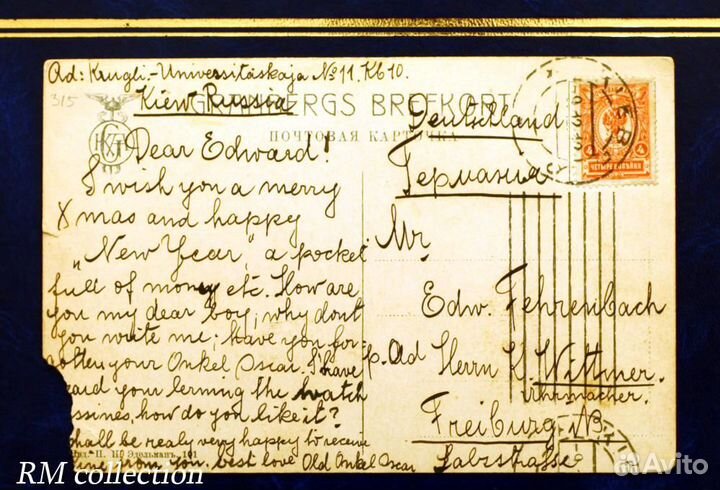 Ad: Krugli.-Universitäskaja No 11. Kb 10.
Kiew Russia
315
GRANBERGS BREFKORT
ПОЧТОВАЯ КАРТОЧКА
Dear Edward!
I wish you a merry
Xmas and happy
"New Year", a pocket
full of money etc. How are
you my dear boy, why dont
you write me; have you for-
gotten your Onkel Oscar. I have
heard your lerning the watch
bussines, how do you like it?
shall be realy very happy to receive
from you. best love Old Onkel Oscar
Изд. П. Ю. Эдельманъ, 101
Deutschland
Германия
Mr.
Edw. Fehrenbach
p. Ad Herrn K. Wittmer.
Uhrmacher.
Freiburg i/B
КІЕВЪ
ЧЕТЫРЕ КОПѢЙКИ
4
RM collection
Avito